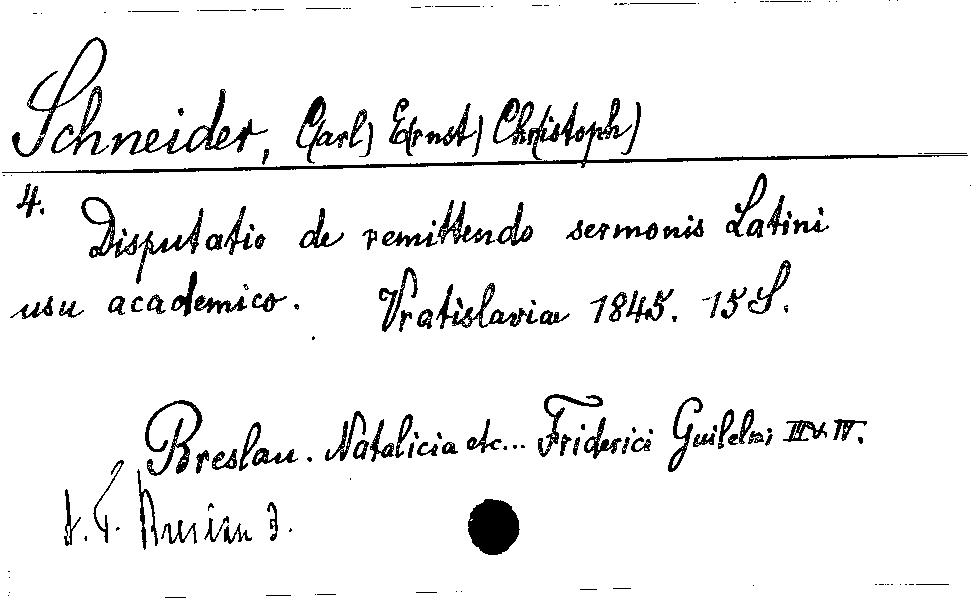 Schneider, C(arl) E(rnst) Ch(ristoph)
4.
Disputatio de remittendo sermonis Latini
usu academico. Vratislaviae 1845. 15 S.
Breslau. Natalicia etc... Friderici Guilelmi IV.